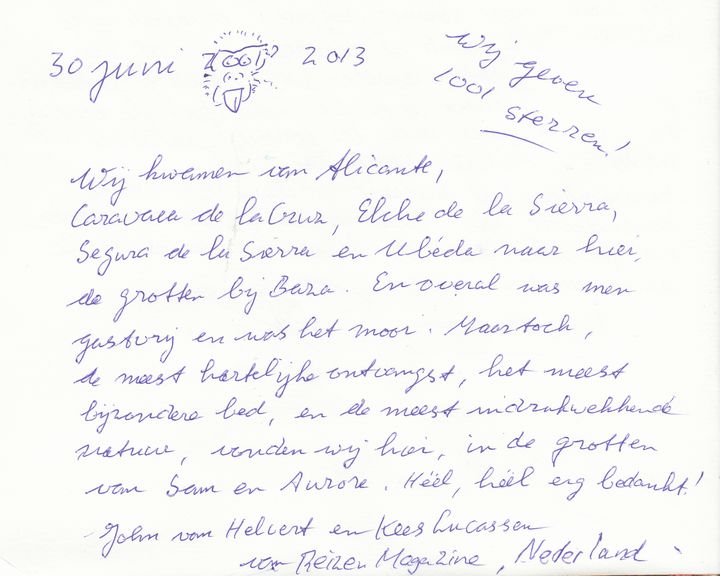 30 juni 2013
Wij geven
1001
sterren!
Wij kwamen van Alicante,
Caravaca de la Cruz, Elche de la Sierra,
Segura de la Sierra en Ubéda naar hier,
de grotten bij Baza. En overal was men
gastvrij en was het mooi. Maar toch,
de meest hartelijke ontvangst, het meest
bijzondere bed, en de meest indrukwekkende
natuur, vonden wij hier, in de grotten
van Sam en Aurore. Héél, héél erg bedankt!
John van Helvert en Kees Lucassen
van Reizen Magazine, Nederland